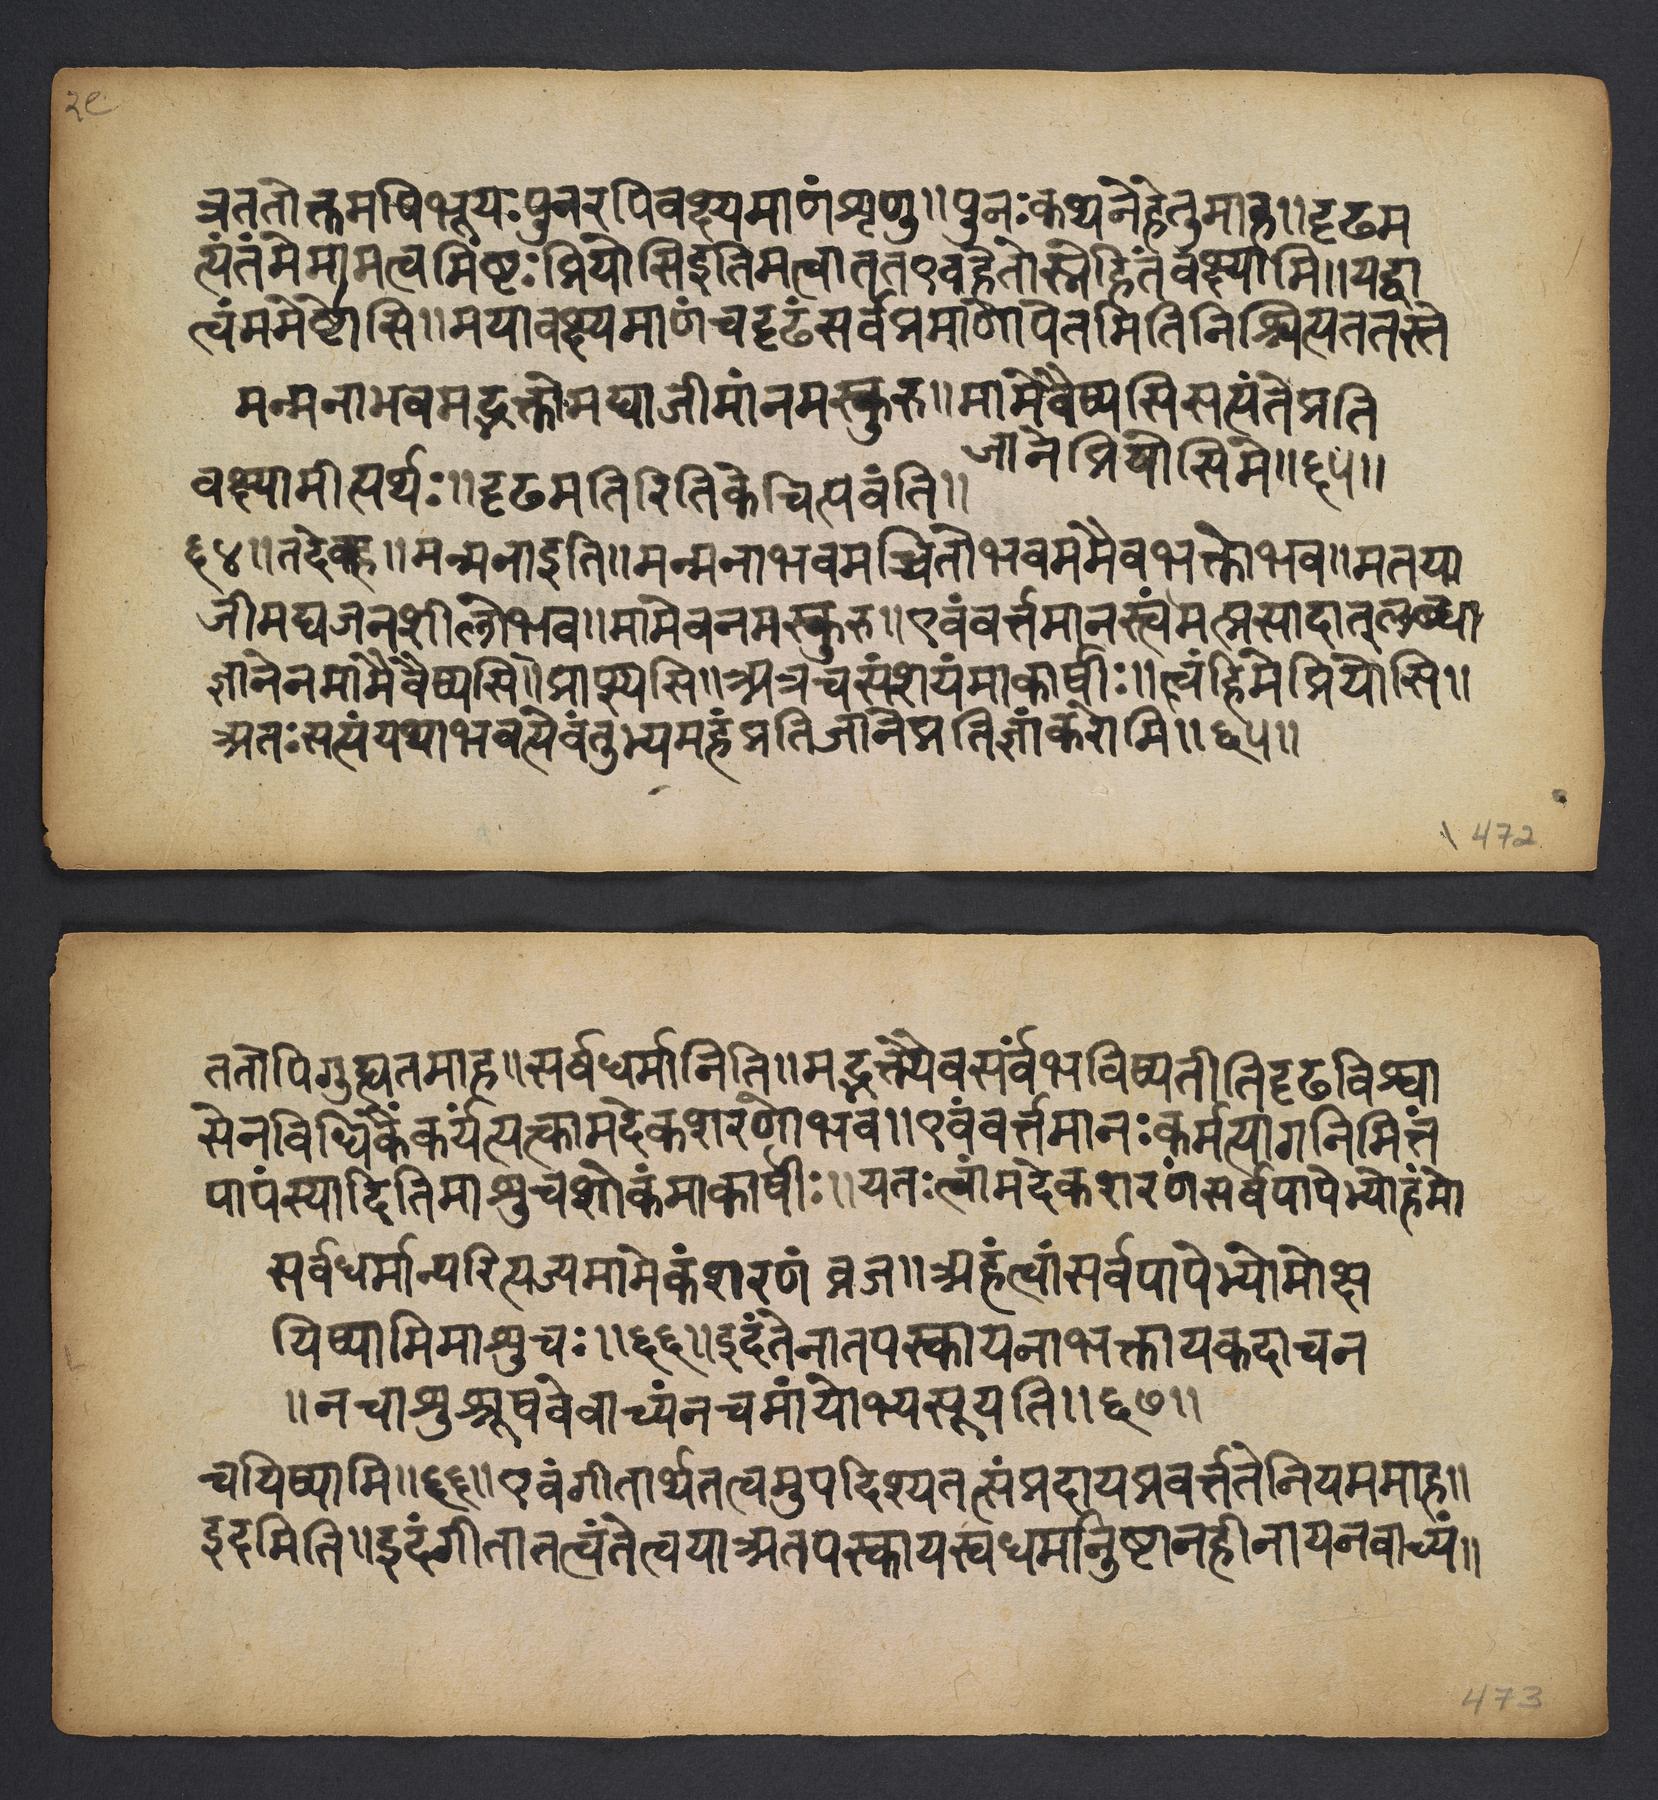 २९
त्रततोक्तमपिभूयःपुनरपिवक्ष्यमाणंशृणु॥पुनःकथनेहेतुमाह॥दृढम
त्यंतंमेमामत्वमिष्टःप्रियोसिइतिमत्वाततएवहेतोस्नेहितंवक्ष्यामि॥यद्वा
त्वंममेष्टोसि॥मयावक्ष्यमाणंचदृढंसर्वप्रमाणोपेतमितिनिश्चित्यततस्ते
मन्मनाभवमद्भक्तोमद्याजीमांनमस्कुरु॥मामेवैष्यसिसत्यंतेप्रति
जानेप्रियोसिमे॥६५॥
वक्ष्यामीत्यर्थः॥दृढमतिरितिकेचित्पवंति॥
६४॥तदेवाह॥मन्मनाइति॥मन्मनाभवमच्चित्तोभवममैवभक्तोभव॥मतया
जीमद्यजनशीलोभव॥मामेवनमस्कुरु॥एवंवर्त्तमानस्त्वंमत्प्रसादात्लब्धा
ज्ञानेनमामेवैष्यसि॥प्राप्स्यसि॥अत्रचसंशयंमाकार्षीः॥त्वंहिमेप्रियोसि॥
अतःसत्यंयथाभवत्येवंतुभ्यमहंप्रतिजानेप्रतिज्ञांकरोमि॥६५॥
472
ततोपिगुह्यतमाह॥सर्वधर्मानिति॥मद्भक्त्यैवसंर्वभविष्यतीतिदृढविश्वा
सेनविधिकैंकर्यंत्यत्कामदेकशरणोभव॥एवंवर्त्तमानःकर्मत्यागनिमित्तं
पापंस्यादितिमाशुचशोकंमाकार्षीः॥यतःत्वांमदेकशरणंसर्वपापेभ्योहंमो
सर्वधर्मान्परित्यज्यमामेकंशरणं व्रज॥अहंत्वांसर्वपापेभ्योमोक्ष
यिष्यामिमाशुचः॥६६॥इदंतेनातपस्कायनाभक्तायकदाचन
॥नचाशुश्रूषवेवाच्यंनचमांयोभ्यसूयति॥६७॥
चयिष्यामि॥६६॥एवंगीतार्थतत्वमुपदिश्यतत्संप्रदायप्रवर्त्ततेनियममाह॥
इदमिति॥इदंगीतातत्वंतेत्वयाअतपस्कायस्वधर्मानुष्टानहीनायनवाच्यं॥
473